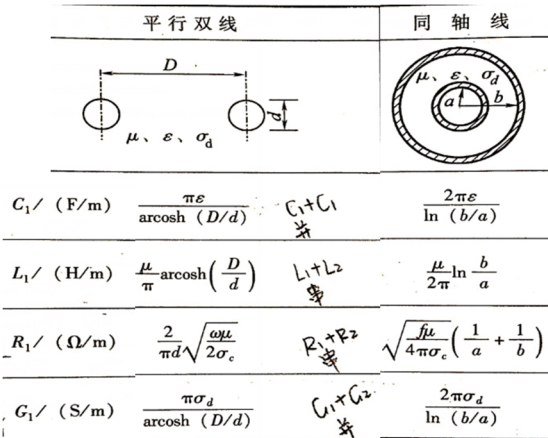 平行双线 同轴线
D
d
μ、ε、σ_d
μ、ε、σ_d
a b
C₁/ (F/m) πε / arcosh (D/d) C₁+C₁ 并 2πε / ln (b/a)
L₁/ (H/m) μ/π arcosh(D/d) L₁+L₂ 串 μ/2π ln b/a
R₁/ (Ω/m) 2/πd √(ωμ/2σ_c) R₁+R₂ 串 √(fμ/4πσ_c) (1/a + 1/b)
G₁/ (S/m) πσ_d / arcosh (D/d) G₁+G₂ 并 2πσ_d / ln (b/a)